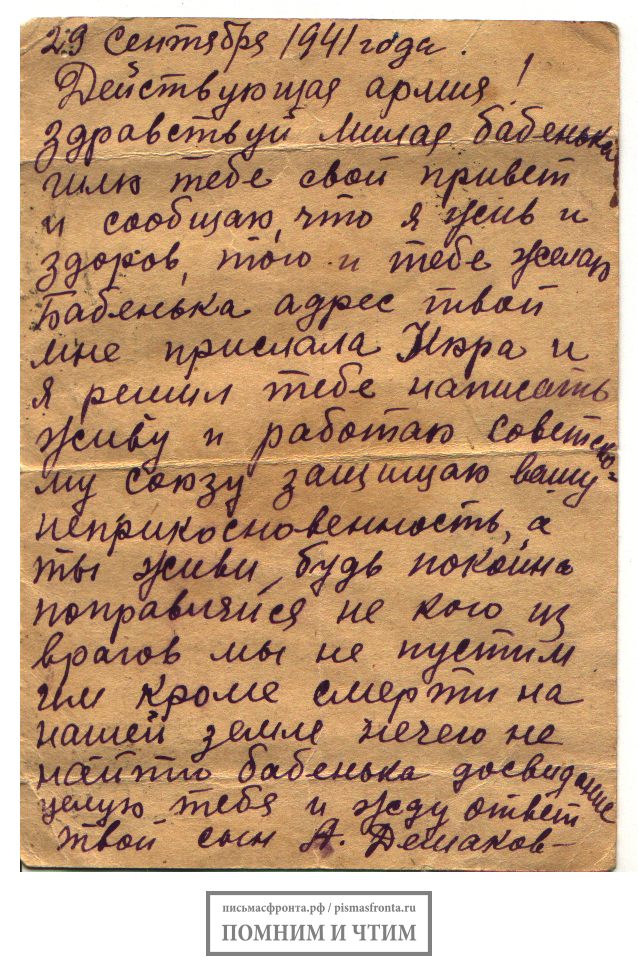 29 сентября 1941 года.
Действующая армия!
здравствуй милая бабенька
шлю тебе свой привет
и сообщаю, что я жив и
здоров, того и тебе желаю
Бабенька адрес твой
мне прислала Нюра и
я решил тебе написать
живу и работаю советско-
му союзу защищаю вашу
неприкосновенность, а
ты живи, будь покойна
поправляйся не кого из
врагов мы не пустим
им кроме смерти на
нашей земле нечего не
найти бабенька досвидание
целую тебя и жду ответ
твой сын А. Демаков
письмасфронта.рф / pismasfronta.ru
ПОМНИМ И ЧТИМ